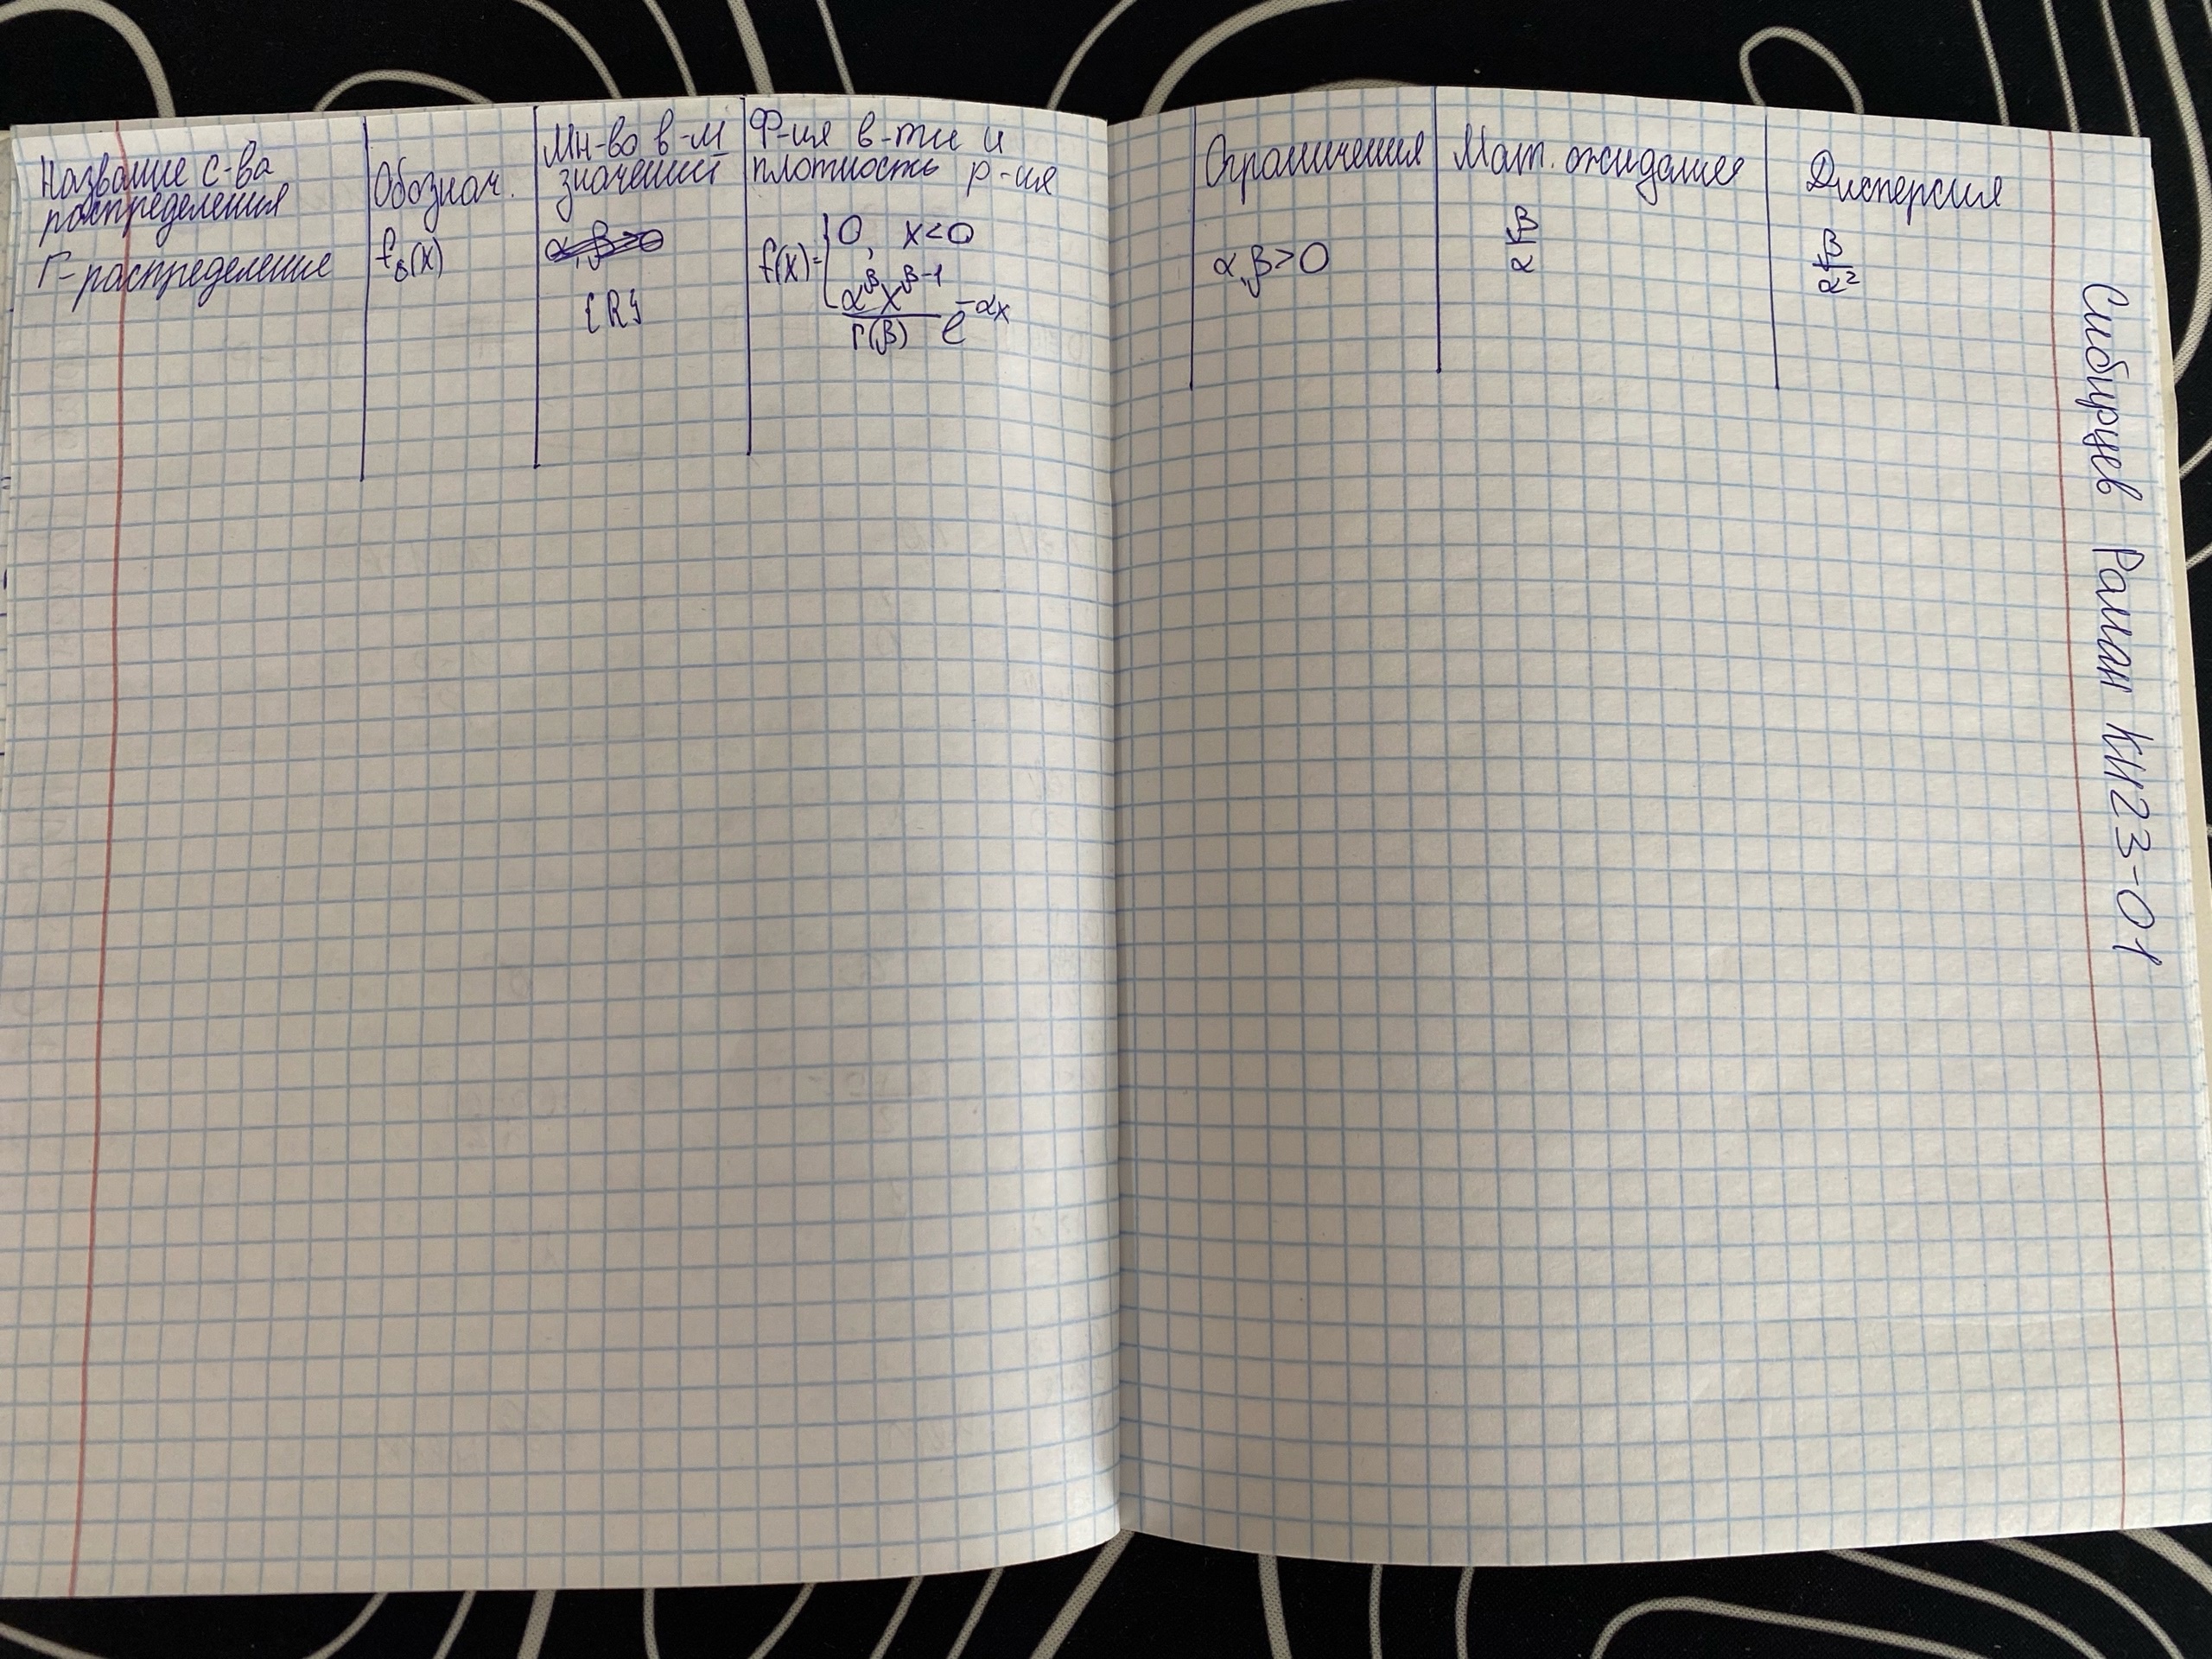 Название с-ва распределения
Обознач.
Мн-во в-м значений
Ф-ия в-ти и плотность р-ия
Ограничения
Мат. ожидание
Дисперсия
Г-распределение
fᵦ(x)
{R}
f(x)={0, x<0
α^β x^(β-1) / Γ(β) e^(-αx)
α,β>0
β/α
β/α²
Сибирцев Роман КИ23-01